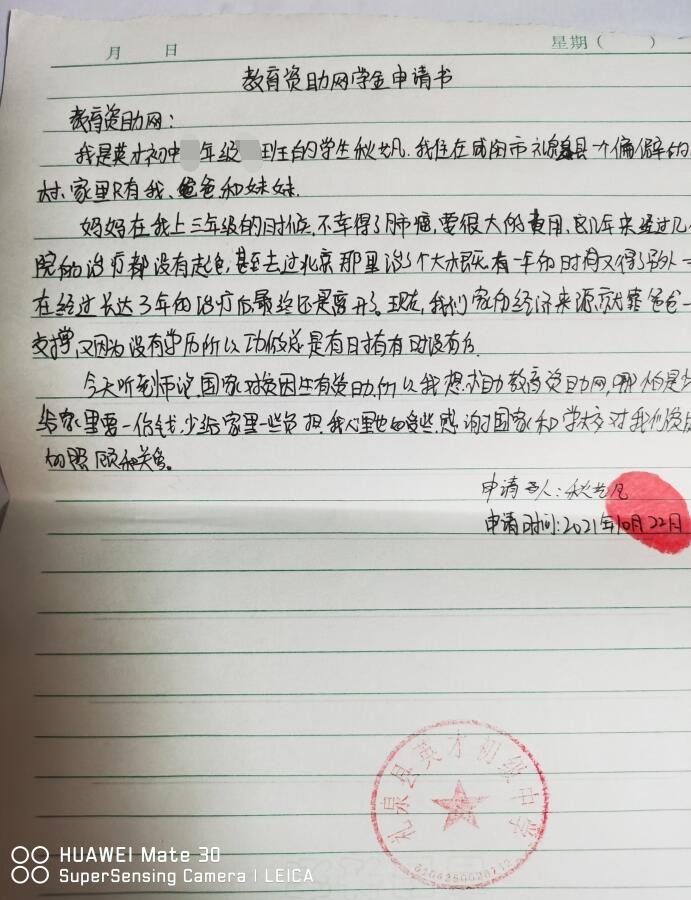 月 日 星期（ ）
教育资助网学金申请书
教育资助网：
我是英才初中 年级 班的学生秋艺凡.我住在咸阳市礼泉县一个偏僻的
村.家里只有我、爸爸和妹妹.
妈妈在我上三年级的时候,不幸得了肺癌,要很大的费用,的几年来经过几
院的治疗都没有起色,甚至去过北京那里治了个大概.有一年的时间又得了另外一
在经过长达3年的治疗后最终还是离开了.现在,我们家的经济来源就靠爸爸一
支撑,又因为没有学历所以工作总是有时有有时没有的.
今天听到师说,国家对贫困生有资助,所以我想求助教育资助网,哪怕是
给家里要一份钱,少给家里一些负担.我心里也好受些.感谢国家和学校对我们
的照顾和关爱。
申请人:秋艺凡
申请时间:2021年10月22月
礼泉县英才初级中学
HUAWEI Mate 30
SuperSensing Camera | LEICA